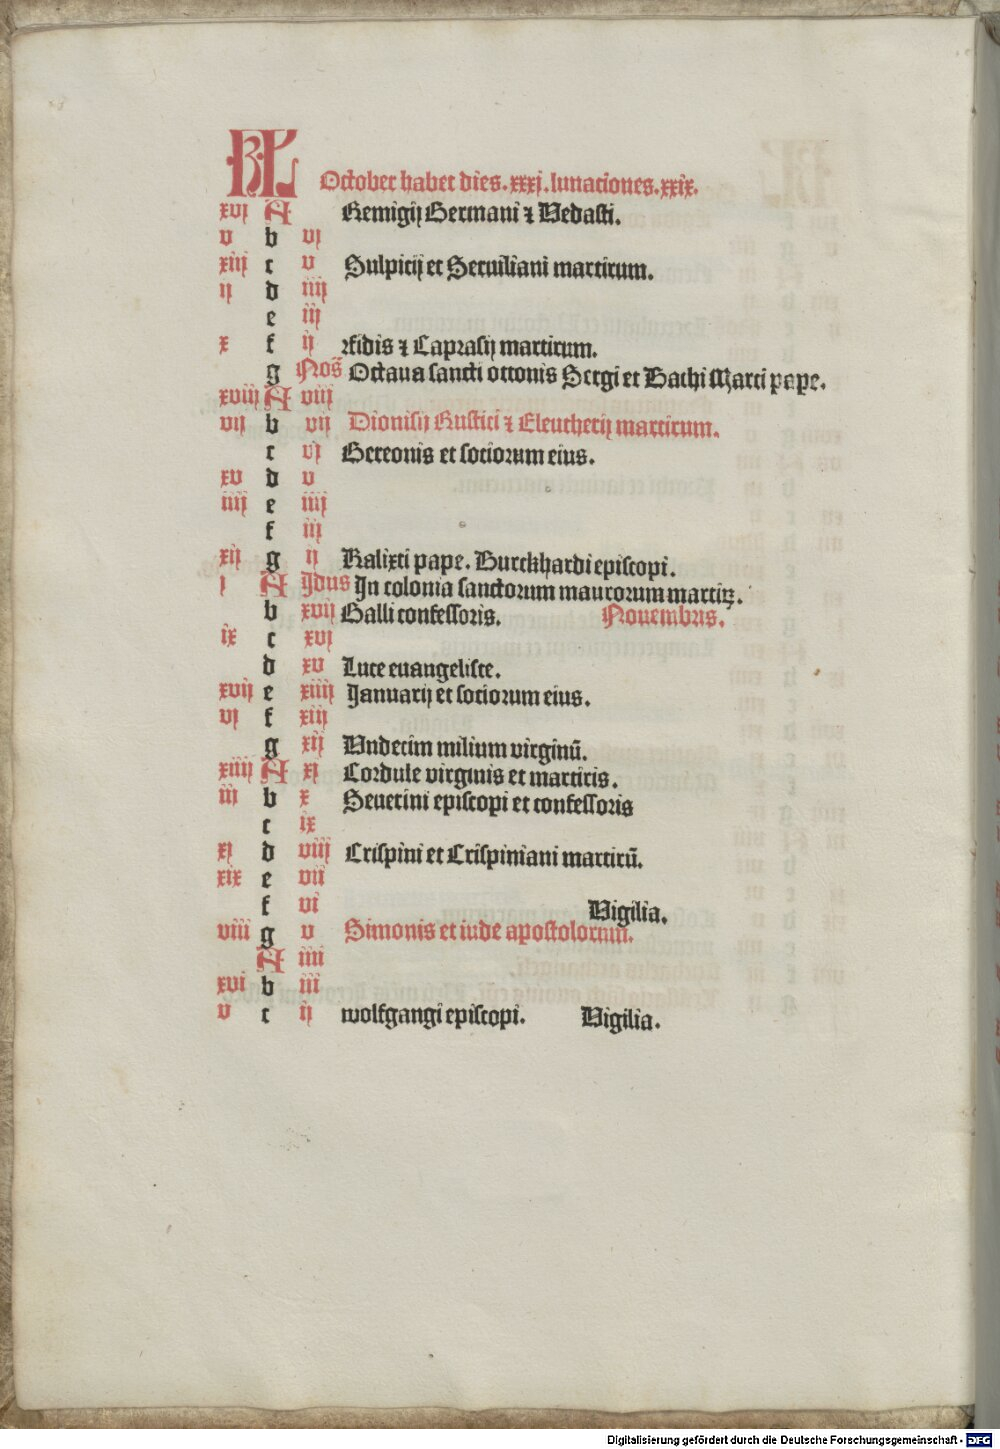 KL October habet dies.xxxj.lunationes.xxix.
xvj A Remigij Germani ⁊ Vedasti.
v b vj
xiij c v Sulpicij et Seruiliani martirum.
ij d iiij
e iij
x f ij Fidis ⁊ Caprasij martirum.
g Noñ Octaua sancti ottonis Sergi et Bachi Marci pape.
xviij A viij
vij b vij Dionisij Rustici ⁊ Eleutherij martirum.
c vj Gereonis et sociorum eius.
xv d v
iiij e iiij
f iij
xij g ij Kalixti pape. Burckhardi episcopi.
j A Idus In colonia sanctorum maurorum martiꝝ.
b xvij Galli confessoris. Nouembris.
ix c xvj
d xv Luce euangeliste.
xvij e xiiij Januarij et sociorum eius.
vj f xiij
g xij Vndecim milium virginū.
xiiij A xj Cordule virginis et martiris.
iij b x Seuerini episcopi et confessoris
c ix
xj d viij Crispini et Crispiniani martirū.
xix e vij
f vi Vigilia.
viij g v Simonis et iude apostolorum.
A iiij
xvi b iij
v c ij wolfgangi episcopi. Vigilia.
Digitalisierung gefördert durch die Deutsche Forschungsgemeinschaft - DFG